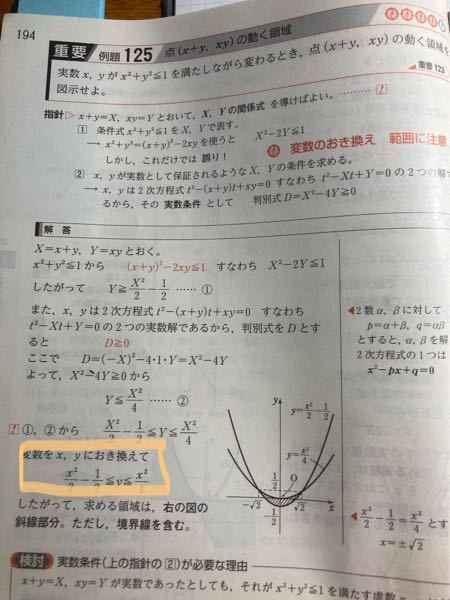 194
重要 例題 125 点(x+y, xy)の動く領域
実数 x, y が x²+y²≦1 を満たしながら変わるとき，点(x+y, xy)の動く領域を
図示せよ。
重要 123
指針▷ x+y=X, xy=Y とおいて，X, Y の関係式 を導けばよい。………!
1 条件式 x²+y²≦1 を X, Y で表す。
→ x²+y²=(x+y)²−2xy を使うと X²−2Y≦1
しかし，これだけでは 誤り！ 変数のおき換え 範囲に注意
2 x, y が実数として保証されるような X, Y の条件を求める。
→ x, y は 2 次方程式 t²−(x+y)t+xy=0 すなわち t²−Xt+Y=0 の 2 つの解で
るから，その 実数条件 として 判別式 D=X²−4Y≧0
解答
X=x+y, Y=xy とおく。
x²+y²≦1 から (x+y)²−2xy≦1 すなわち X²−2Y≦1
したがって Y≧X²/2−1/2 …… ①
また，x, y は 2 次方程式 t²−(x+y)t+xy=0 すなわち
t²−Xt+Y=0 の 2 つの実数解であるから，判別式を D とす
ると D≧0
ここで D=(−X)²−4·1·Y=X²−4Y
よって，X²−4Y≧0 から
Y≦X²/4 …… ②
! ①，② から X²/2−1/2≦Y≦X²/4
変数を x, y におき換えて
x²/2−1/2≦y≦x²/4
したがって，求める領域は，右の図の
斜線部分。ただし，境界線を含む。
y
y=x²/2−1/2
y=x²/4
O
−√2
−1/2
−1/2
√2
x
◀2 数 α, β に対して
p=α+β, q=αβ
とすると，α, β を解
2 次方程式の 1 つは
x²−px+q=0
◀x²/2−1/2=x²/4 とす
x=±√2
検討 実数条件（上の指針の 2）が必要な理由
x+y=X, xy=Y が実数であったとしても，それが x²+y²≦1 を満たす虚数 x,